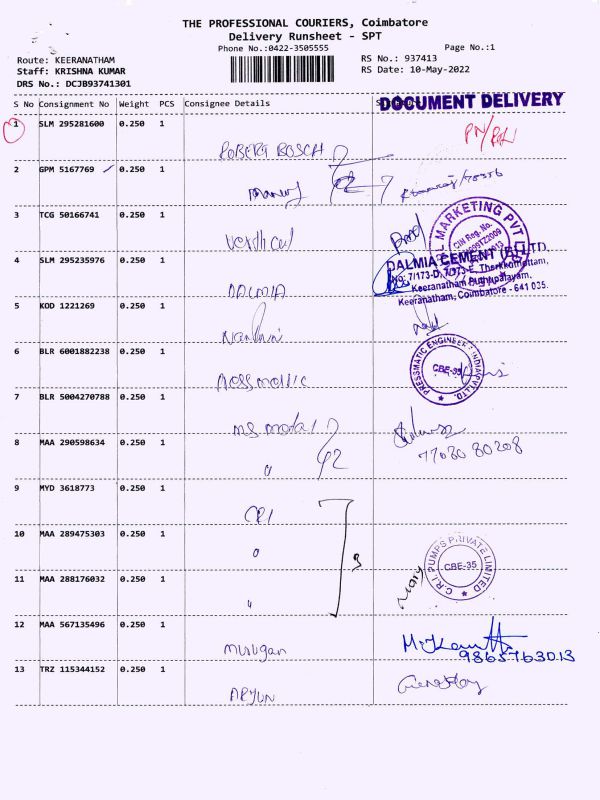 THE PROFESSIONAL COURIERS, Coimbatore
Delivery Runsheet - SPT
Phone No.:0422-3505555
Page No.:1
Route: KEERANATHAM
RS No.: 937413
Staff: KRISHNA KUMAR
RS Date: 10-May-2022
DRS No.: DCJB93741301
S No Consignment No Weight PCS Consignee Details
DOCUMENT DELIVERY
1 SLM 295281600 0.250 1
ROBERG BOSCH
2 GPM 5167769 0.250 1
3 TCG 50166741 0.250 1
Vertical
MARKETING PVT
CIN Reg. No.
4 SLM 295235976 0.250 1
DALMIA
DALMIA CEMENT (B) LTD.
No: 7/173-D, 7/173-E, Therkkothottam,
Keeranatham Puthupalayam,
Keeranatham, Coimbatore - 641 035.
5 KOD 1221269 0.250 1
6 BLR 6001882238 0.250 1
PRESSMATIC ENGINEER INDIA PVT LTD.
CBE-35
7 BLR 5004270788 0.250 1
MS metal
77080 80208
8 MAA 290598634 0.250 1
"
9 MYD 3618773 0.250 1
CRI
3
10 MAA 289475303 0.250 1
"
C.R.I. PUMPS PRIVATE LIMITED
CBE-35
Mary
11 MAA 288176032 0.250 1
"
12 MAA 567135496 0.250 1
Murugan
9865763013
13 TRZ 115344152 0.250 1
ARJUN